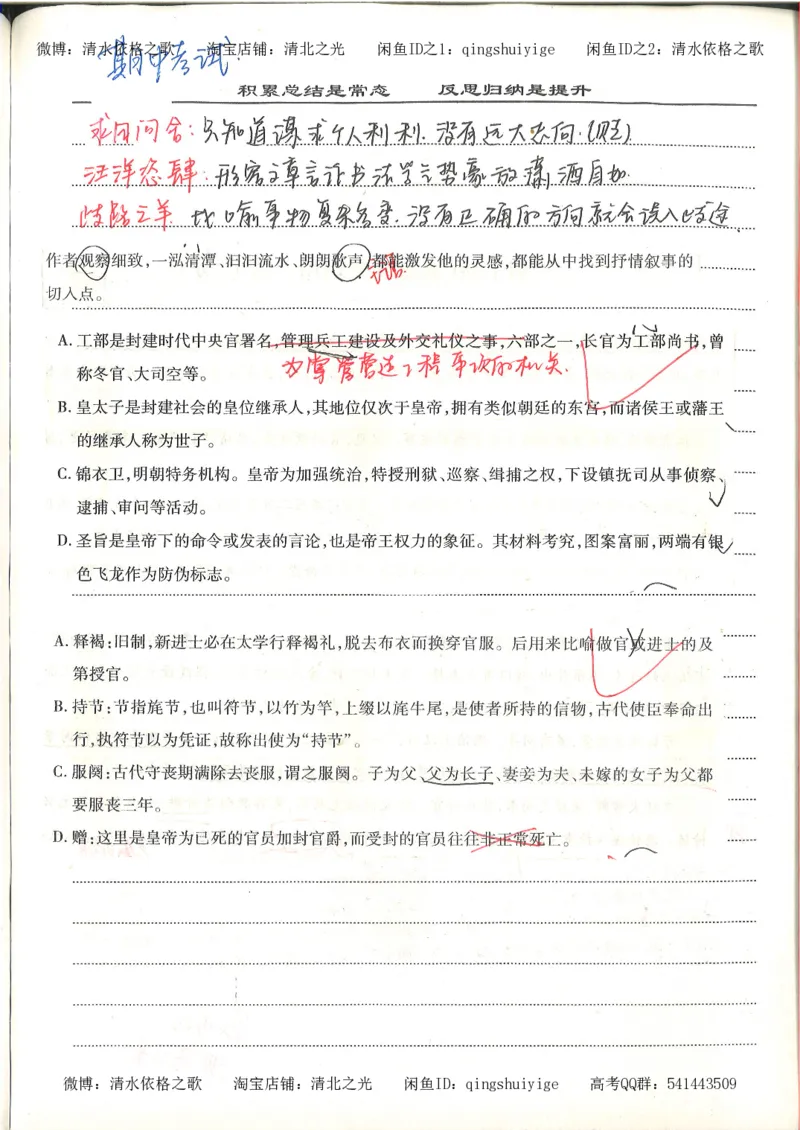 微博：清水依格之歌　淘宝店铺：清北之光　闲鱼ID之1：qingshuiyige　闲鱼ID之2：清水依格之歌
期中考试
积累总结是常态　反思归纳是提升
求田问舍：只知道谋求个人利利．没有远大志向．(贬)
汪洋恣肆：形容文章言论书法气势豪放潇洒自如
歧路亡羊 比喻事物复杂多变．没有正确的方向就会误入歧途
作者观察细致,一泓清潭、汩汩流水、朗朗歌声,都能激发他的灵感,都能从中找到抒情叙事的
切入点。
A.工部是封建时代中央官署名,管理兵工建设及外交礼仪之事,六部之一,长官为工部尚书,曾
为掌管营造工程事项的机关.
称冬官、大司空等。
B.皇太子是封建社会的皇位继承人,其地位仅次于皇帝,拥有类似朝廷的东宫,而诸侯王或藩王
的继承人称为世子。
C.锦衣卫,明朝特务机构。皇帝为加强统治,特授刑狱、巡察、缉捕之权,下设镇抚司从事侦察、
逮捕、审问等活动。
D.圣旨是皇帝下的命令或发表的言论,也是帝王权力的象征。其材料考究,图案富丽,两端有银
色飞龙作为防伪标志。
A.释褐:旧制,新进士必在太学行释褐礼,脱去布衣而换穿官服。后用来比喻做官或进士的及
第授官。
B.持节:节指旄节,也叫符节,以竹为竿,上缀以旄牛尾,是使者所持的信物,古代使臣奉命出
行,执符节以为凭证,故称出使为“持节”。
C.服阕:古代守丧期满除去丧服,谓之服阕。子为父、父为长子、妻妾为夫、未嫁的女子为父都
要服丧三年。
D.赠:这里是皇帝为已死的官员加封官爵,而受封的官员往往非正常死亡。
微博：清水依格之歌　淘宝店铺：清北之光　闲鱼ID：qingshuiyige　高考QQ群：541443509